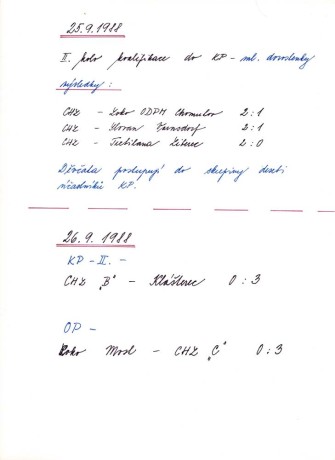 25.9.1988
II. kolo kvalifikace do KP - ml. dorostenky
výsledky :
CHZ - Loko ODPM Chomutov 2 : 1
CHZ - Slovan Varnsdorf 2 : 1
CHZ - Textilana Liberec 2 : 0
Děvčata postupují do skupiny desti
účastníků KP.
26.9.1988
KP - II. -
CHZ "B" - Klášterec 0 : 3
OP -
Loko Most - CHZ "C" 0 : 3